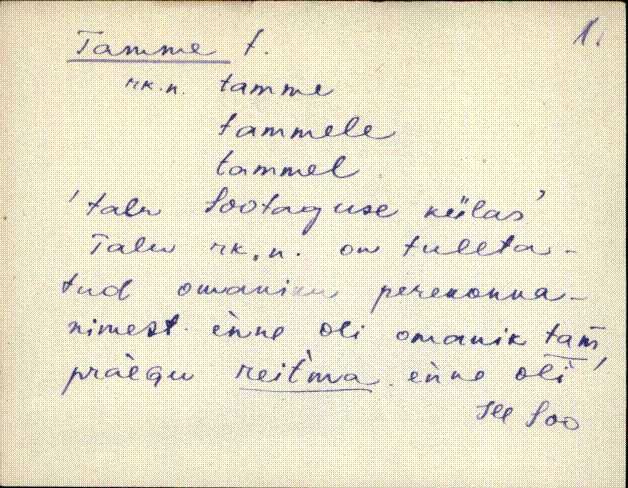 Tamme t. 1.
rk.n. tamme
tammele
tammel
'talu Sootaguse külas'
Talu rk.n. on tuleta-
tud omaniku perekonna-
nimest. ènne oli omanik tam̄,
pràegu reit'ma. ènne oli
see Soo